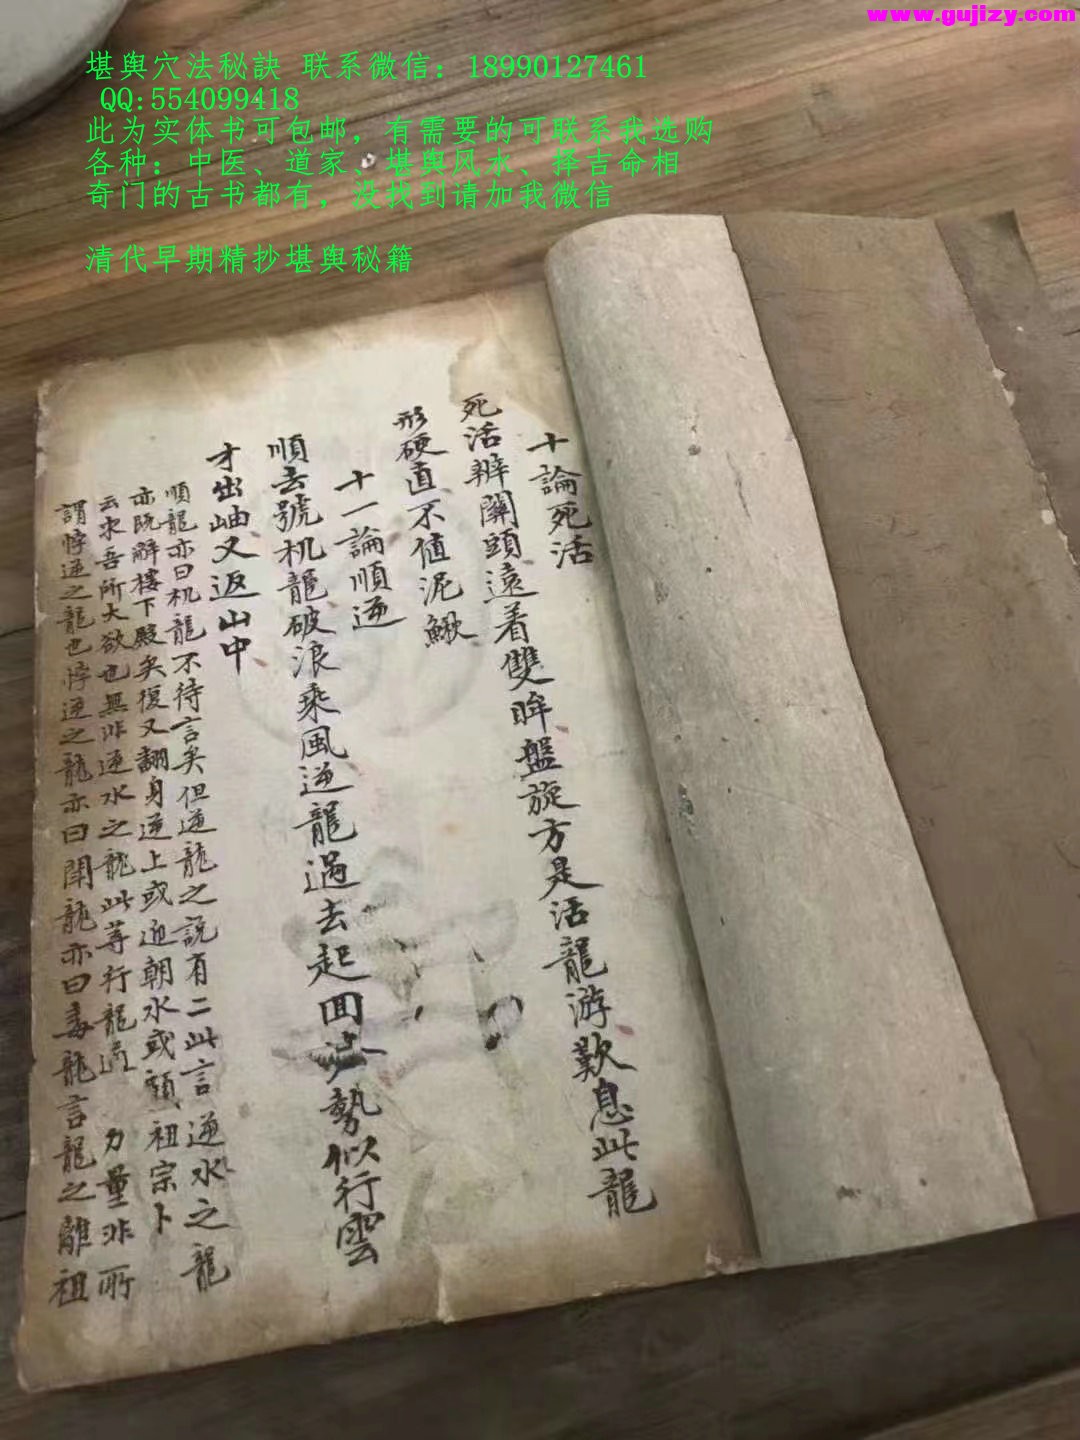 www.gujizy.com
堪舆穴法秘訣 联系微信：18990127461
QQ:554099418
此为实体书可包邮，有需要的可联系我选购
各种：中医、道家、堪舆风水、择吉命相
奇门的古书都有，没找到请加我微信
清代早期精抄堪舆秘籍
十論死活
死活辨關頭遠着雙眸盤旋方是活龍游歎息此龍
形硬直不值泥鰍
十一論順逆
順去號机龍破浪乘風逆龍過去起回 勢似行雲
才出岫又返山中
順龍亦曰机龍不待言矣但逆龍之說有二此言逆水之龍
亦既解樓下殿矣復又翻身逆上或迎朝水或顧祖宗卜
云求吾所大欲也無非逆水之龍此等行龍 力量非所
謂悖逆之龍也悖逆之龍亦曰 龍亦曰毒龍言龍之離祖